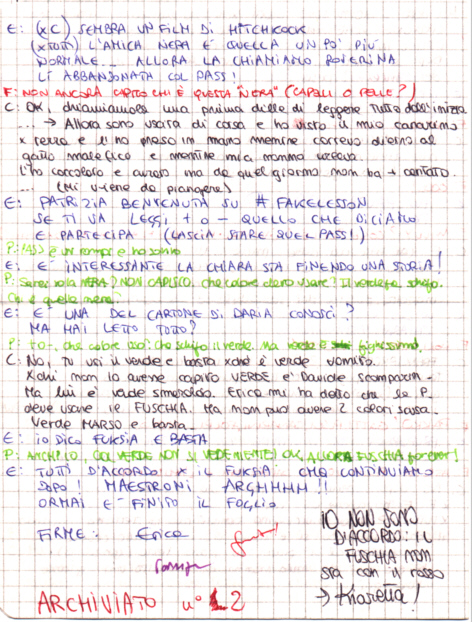 E: (x C) SEMBRA UN FILM DI HITCHCOCK
(x TOTI) L'AMICA NERA E' QUELLA UN PO' PIÙ
NORMALE... ALLORA LA CHIAMIAMO POVERINA
LÌ ABBANDONATA COL PASS!
F: NON ANCORA CAPITO CHI È QUESTA "NERA" (CAPELLI O PELLE?)
C: OK, chiamiamola ma prima di leggere tutto dall'inizio
... → Allora sono uscita di casa e ho visto il mio canarino
x terra e l'ho preso in mano mentre correvo dietro al
gatto malefico e mentre mia nonna
l'ho coccolato e curato ma da quel giorno non ha + cantato.
(Mi viene da piangere)
E: PATRIZIA BENVENUTA SU #FAKELESSON
SE TI VA LEGGI + O - QUELLO CHE DICIAMO
E PARTECIPA (LASCIA STARE QUEL PASS!)
P: PASS è un
E: E' INTERESSANTE LA CHIARA STA FINENDO UNA STORIA!
P: NERA? NON CAPISCO, che colore devo usare? Il verde fa schifo.
Chi è quella nera?
E: E' UNA DEL CARTONE DI DARIA CONOSCI?
MA HAI LETTO TUTTO?
P: che colore uso? che schifo il verde. Ma
C: No, tu usi il verde e basta xché è verde vomito.
Xchi non lo avesse capito VERDE è Davide scomparin.
Ma lui è verde smeraldo. Erica mi ha detto che la P.
deve usare il FUSCHIA. Ma non può avere 2 colori scusa.
Verde MARSO e basta.
E: IO DICO FUKSIA E BASTA
P: ANCH'IO. COL VERDE NON SI VEDE NIENTE! OK, ALLORA FUSCHIA forever!
E: TUTTI D'ACCORDO x IL FUKSIA CHE CONTINUIAMO
DOPO! MAESTRONI ARGHHHH!!
ORMAI E' FINITO IL FOGLIO
FIRME: Erica
IO NON SONO
D'ACCORDO: IL
FUSCHIA NON
sta con il rosso
→ Kiaretta!
ARCHIVIATO n° 2